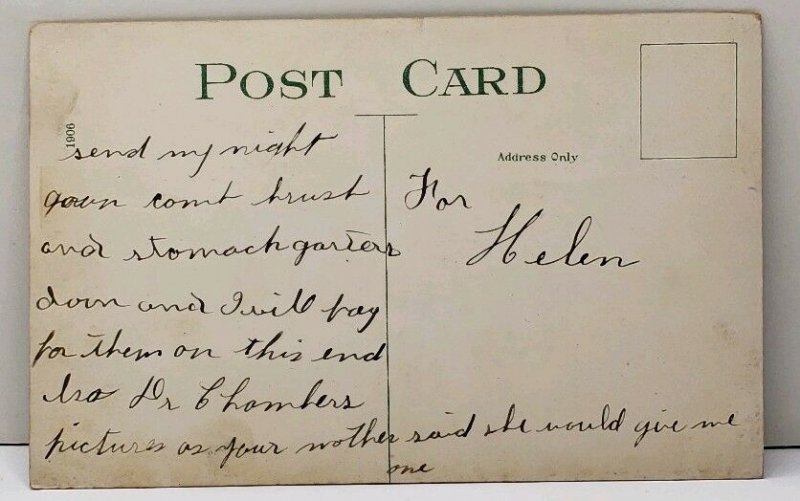 POST CARD
1906
Address Only
send my night
gown comt brush
and stomach garters
down and I will pay
for them on this end
Also Dr Chambers
pictures as your mother said she would give me
one
For
Helen